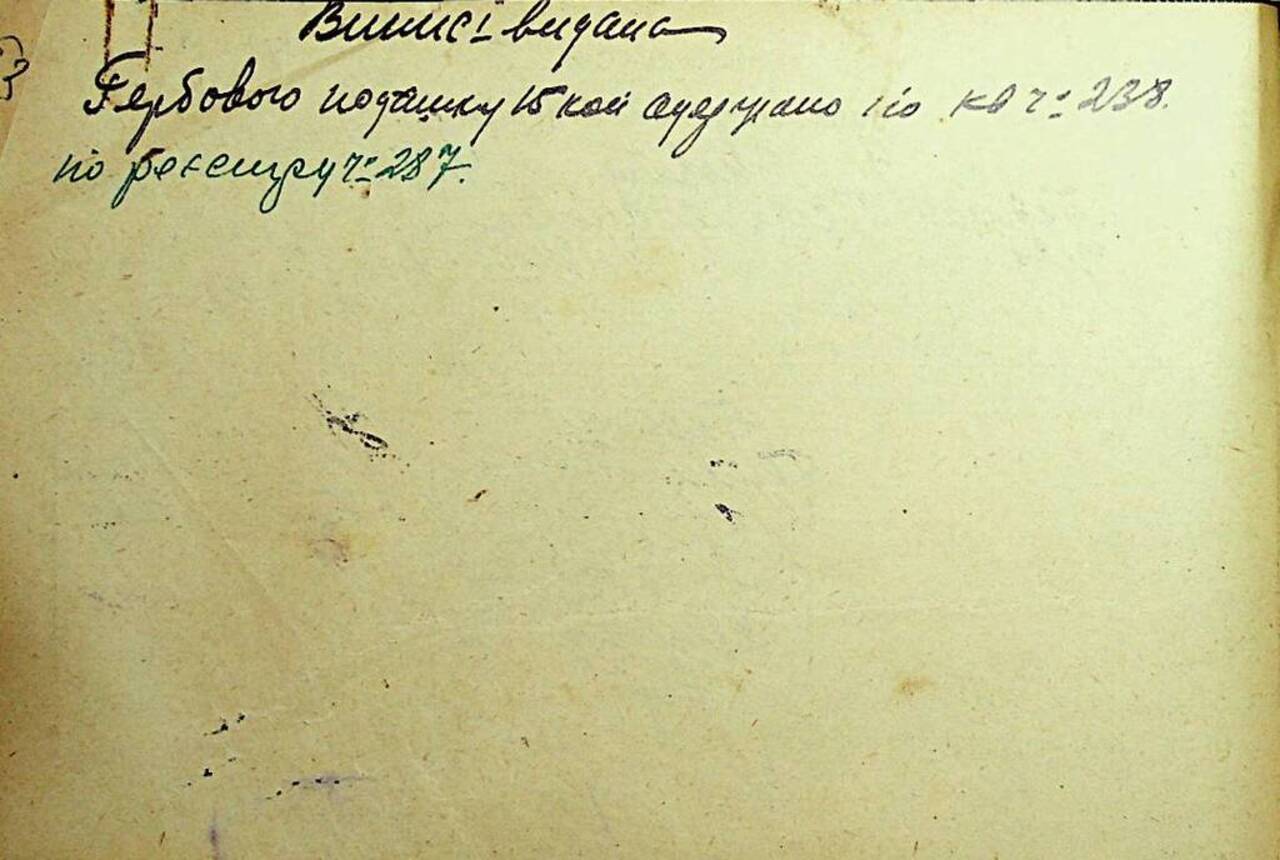 Виписі видана
Гербового податку 15 коп одержано по кв ч: 238.
по реєстру ч: 287.